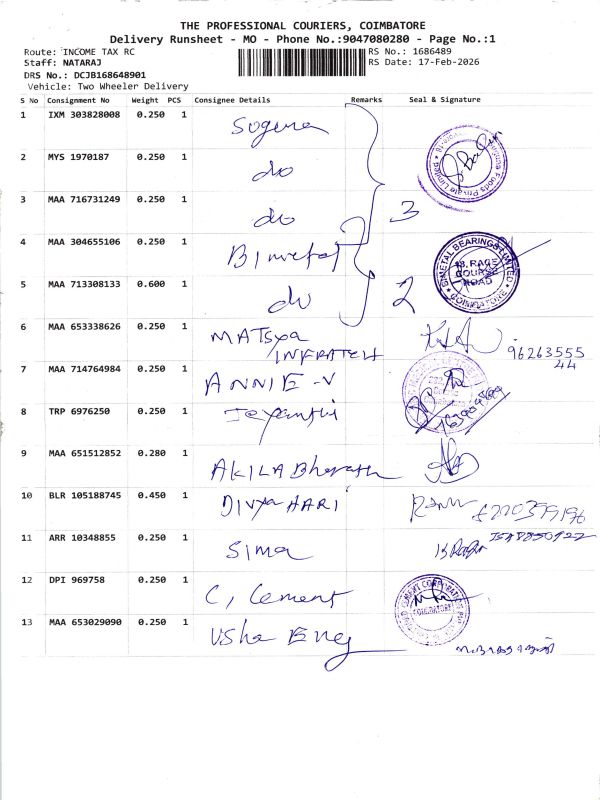 THE PROFESSIONAL COURIERS, COIMBATORE
Delivery Runsheet - MO - Phone No.:9047080280 - Page No.:1
Route: INCOME TAX RC
RS No.: 1686489
Staff: NATARAJ
RS Date: 17-Feb-2026
DRS No.: DCJB168648901
Vehicle: Two Wheeler Delivery
S No Consignment No Weight PCS Consignee Details Remarks Seal & Signature
1 IXM 303828008 0.250 1 Suguna
2 MYS 1970187 0.250 1 do
3 MAA 716731249 0.250 1 do 3
4 MAA 304655106 0.250 1 Bimetal
BIMETAL BEARINGS LIMITED
18, RACE
COURSE
ROAD
COIMBATORE
5 MAA 713308133 0.600 1 do 2
6 MAA 653338626 0.250 1 MATSYA
INFRATECH
96263555
44
7 MAA 714764984 0.250 1 ANNIE-V
8 TRP 6976250 0.250 1 Jeyanthi
9 MAA 651512852 0.280 1 AKILA Bharath
10 BLR 105188745 0.450 1 DIVYA HARI
11 ARR 10348855 0.250 1 Sima
12 DPI 969758 0.250 1 C, Cement
COIMBATORE
13 MAA 653029090 0.250 1 Usha Eng